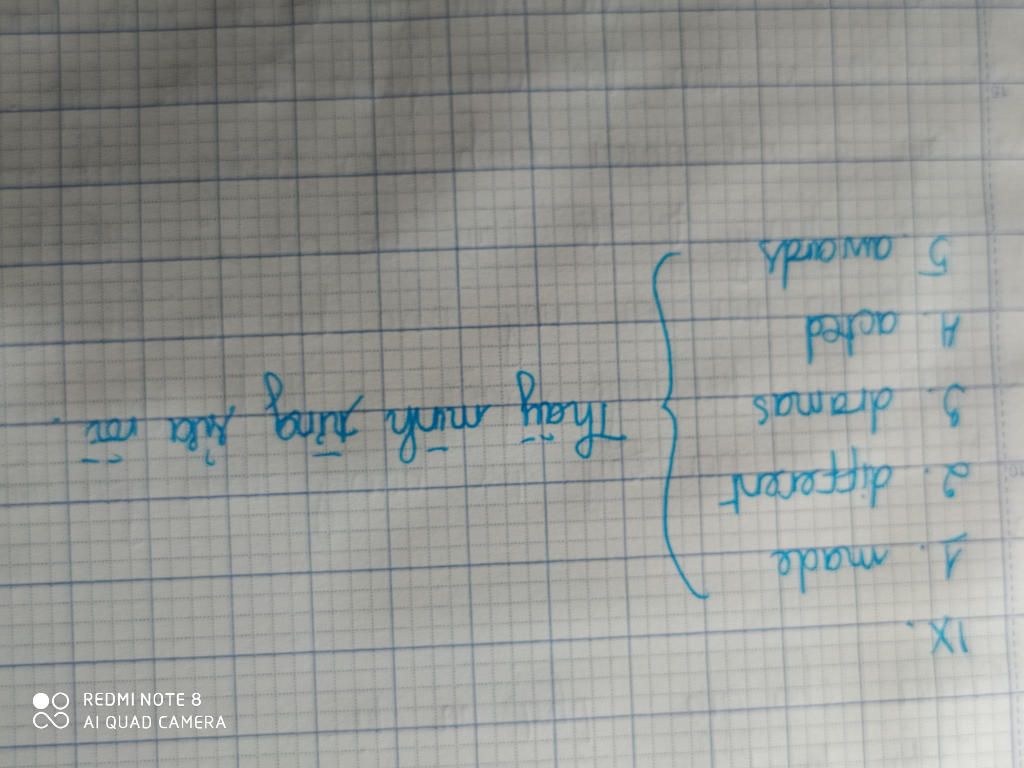 IX.
1. made
2. different
3. dramas
4. acted
5. awards
Thầy mình từng sửa rồi.
REDMI NOTE 8
AI QUAD CAMERA